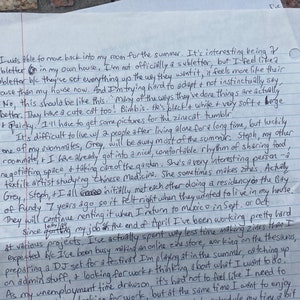 I was able to move back into my room for the summer. It's interesting being a
subletter in my own house. I'm not officially a subletter, but I feel like a
subletter b/c they've set everything up the way they want it, it feels more like their
house than my house now. And I'm trying hard to adapt + not instinctually say
"No, this should be like this." Many of the ways they've done things are actually
better. They have a cat too! Bimbis. He's black + white + very soft + large
+ I'll have to get some pictures for the zine cat tumblr.
It's difficult to live w/ 2 people after living alone for a long time, but luckily
one of my roommates, Grey, will be away most of the summer. Steph, my other
roommate, + I have already got into a nice comfortable rhythm of sharing food,
negotiating space + taking care of the garden. She's a very interesting person - a
textile artist studying Chinese medicine. She sometimes makes zines. Actually
Grey, Steph, + I all initially met each other doing a residency @ the City
of 7 years ago, so it felt right when they wanted to live in my house.
They will continue renting it when I return to in Sept. or Oct.
Since my job @ the end of April I've been working pretty hard
at various projects. I've actually spent way less time making zines than I
expected b/c I've been busy making an online store, working on the
preparing a DJ set for a festival I'm playing at in the summer, catching up
on admin stuff, + looking for work + thinking about what I want to do.
As my unemployment time draws on, it's hard not to feel like I need to
looking for work, but at the same time I want to enjoy